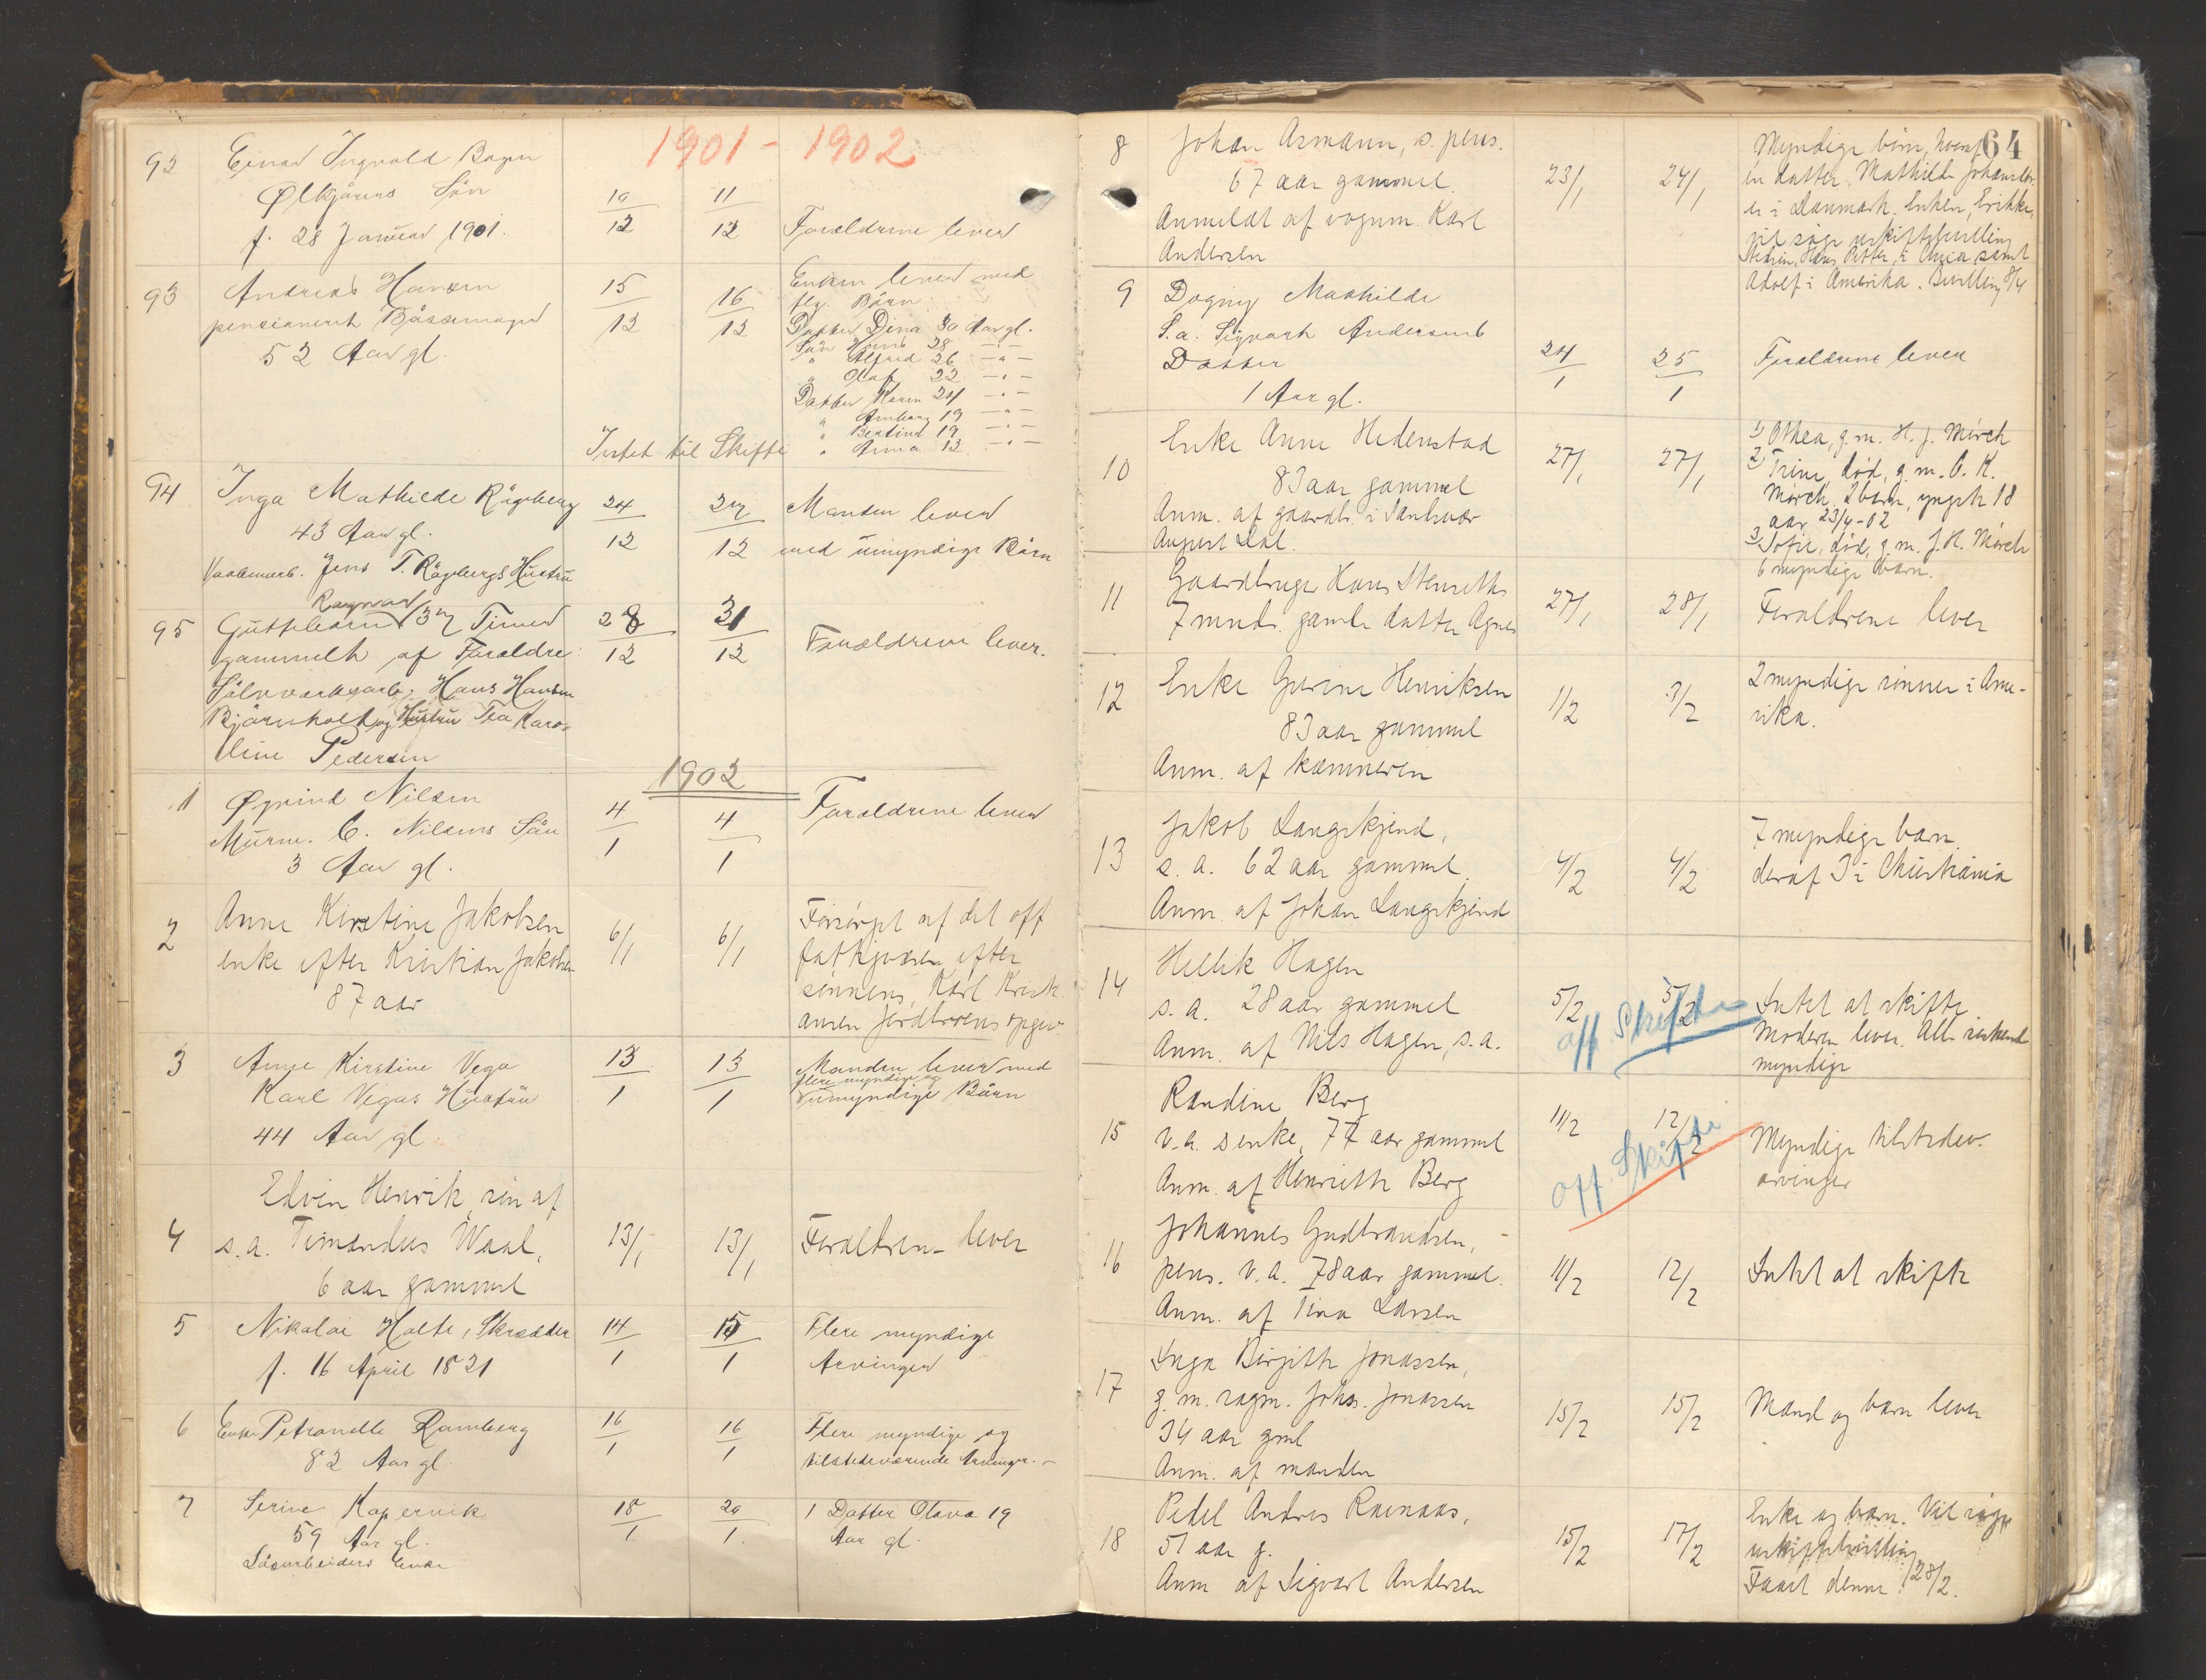 1901 - 1902
92
Einar Ingvald Bogen
Ølkjørers Sön
f. 28 Januar 1901.
10/12
11/12
Forældrene lever
93
Andreas Hansen
pensioneret Bössemager
52 Aar gl.
15/12
16/12
Enken lever med
flg. Börn
Datter Dina 30 Aar gl.
Sön Hans 28 — " —
" Alfred 26 — " —
" Olaf 22 — " —
Datter Karen 24 — " —
" 19 — " —
" 19 — " —
" Anna 13 — " —
Intet til Skifte
94
Inga Mathilde Rögeberg
43 Aar gl.
Vaabenarb. Jens T. Rögebergs Hustru
24/12
27/12
Manden lever
med umyndige Börn
95
Ragnvar
Guttebarn 37 Timer
gammelt af Forældre
Sölvverksarb. Hans Hansen
Bjørnholt og Hustru Tea Karo-
line Pedersen
28/12
31/12
Forældrene lever.
1902
1
Øyvind Nilsen
Murm. C. Nilsens Sön
3 Aar gl.
4/1
4/1
Forældrene lever
2
Anne Kirstine Jakobsen
enke efter Kristian Jakobsen
87 aar
6/1
6/1
Forsørget af det off
fattigvæsen efter
sönnens, Karl Kristi
ansen Jordbroens opgav
3
Anne Kirstine Vega
Karl Vegas Hustru
44 Aar gl.
13/1
13/1
Manden lever med
flere myndige og
umyndige Börn
4
Edvin Henrik, sön af
s.a. Timandus Waal,
6 aar gammel
13/1
13/1
Forældrene lever
5
Nikolai Holte, Skrædder
f. 16 April 1821
14/1
15/1
Flere myndige
Arvinger
6
Enke Petronelle Ramberg
82 Aar gl.
16/1
16/1
Flere myndige og
tilstedeværende Arvinger. —
7
Serine Kopervik
59 Aar gl.
Lösarbeiders Enke
18/1
20/1
1 Datter Olava 19
Aar gl.
64
8
Johan Asmann, s. pens.
67 aar gammel
Anmeldt af vognm. Karl
Andersen
23/1
24/1
Myndige börn, hvoraf
en datter, Mathilde
er i Danmark. Enken, Erikke,
vil söge uskiftebevilling
Hans Petter, i Chria, samt
Adolf i Amerika. Bevilling 8/4
9
Dagny Mathilde
S.a. Sigvart Andersens
Datter
1 Aar gl.
24/1
25/1
Forældrene lever
10
Enke Anne Hedenstad
83 aar gammel
Anm. af gaardbr. i Sandsvær
August Dal.
27/1
27/1
1) Othea, g.m. H. J. Mörch
2) Trine, död, g.m. O. K.
Mörch, 2 barn, yngste 18
aar 23/4-02
3) Sofie, död, g.m. J. H. Mörch
6 myndige barn.
11
Gaardbruger Hans Stenseths
7 mndr. gamle datter Agnes
27/1
28/1
Forældrene lever
12
Enke Gurine Henriksen
83 aar gammel
Anm. af kæmneren
1/2
3/2
2 myndige sönner i Ame-
rika.
13
Jakob Langekjend,
s.a. 62 aar gammel.
Anm. af Johan Langekjend
4/2
4/2
7 myndige barn,
deraf 3 i Christiania
14
Hellik Hagen
s.a. 28 aar gammel
Anm. af Nils Hagen, s.a.
5/2
5/2
off Skifte
Intet at skifte
Moderen lever. Alle söskend
myndige
15
Randine Berg
v.a.s enke, 77 aar gammel
Anm. af Henriette Berg
11/2
12/2
off. Skifte
Myndige tilstedev.
arvinger
16
Johannes Gudbrandsen,
pens. v.a. 78 aar gammel.
Anm. af Tina Larsen
11/2
12/2
Intet at skifte
17
Inga Birgitte Jonassen,
g.m. sagm. Johs. Jonassen
34 aar gml
Anm. af manden
15/2
15/2
Mand og barn lever
18
Pedel Andres Ramaas,
51 aar g.
Anm af Sigvart Andersen
15/2
17/2
Enke og barn. Vil søge
uskiftebevilling
Faaet denne 28/2.